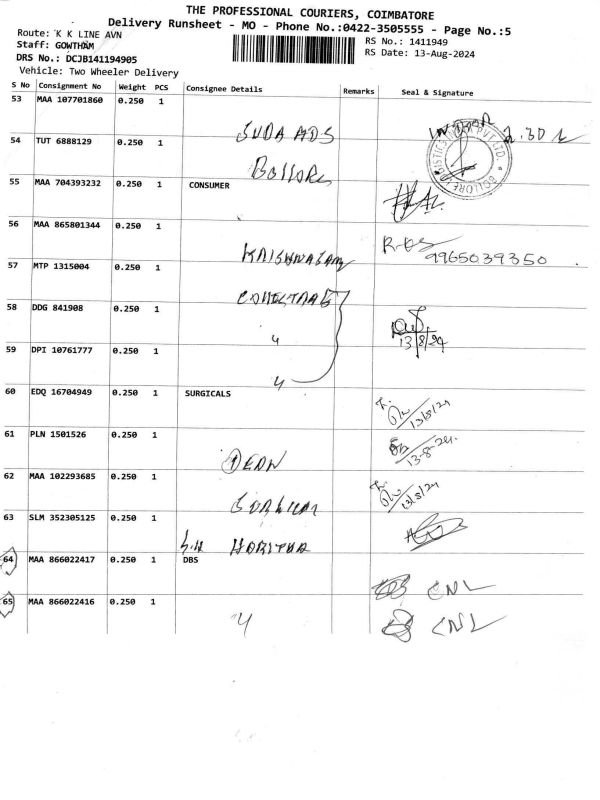 THE PROFESSIONAL COURIERS, COIMBATORE
Delivery Runsheet - MO - Phone No.:0422-3505555 - Page No.:5
Route: K K LINE AVN
Staff: GOWTHAM
DRS No.: DCJB141194905
Vehicle: Two Wheeler Delivery
RS No.: 1411949
RS Date: 13-Aug-2024
S No Consignment No Weight PCS Consignee Details Remarks Seal & Signature
53 MAA 107701860 0.250 1
2.30
54 TUT 6888129 0.250 1
55 MAA 704393232 0.250 1 CONSUMER
56 MAA 865801344 0.250 1
9965039350
57 MTP 1315004 0.250 1
58 DDG 841908 0.250 1
13/8/24
59 DPI 10761777 0.250 1
60 EDQ 16704949 0.250 1 SURGICALS
13/8/24
61 PLN 1501526 0.250 1
13-8-24
62 MAA 102293685 0.250 1
13/8/24
63 SLM 352305125 0.250 1
HARITHA
64 MAA 866022417 0.250 1 DBS
CNL
65 MAA 866022416 0.250 1
CNL